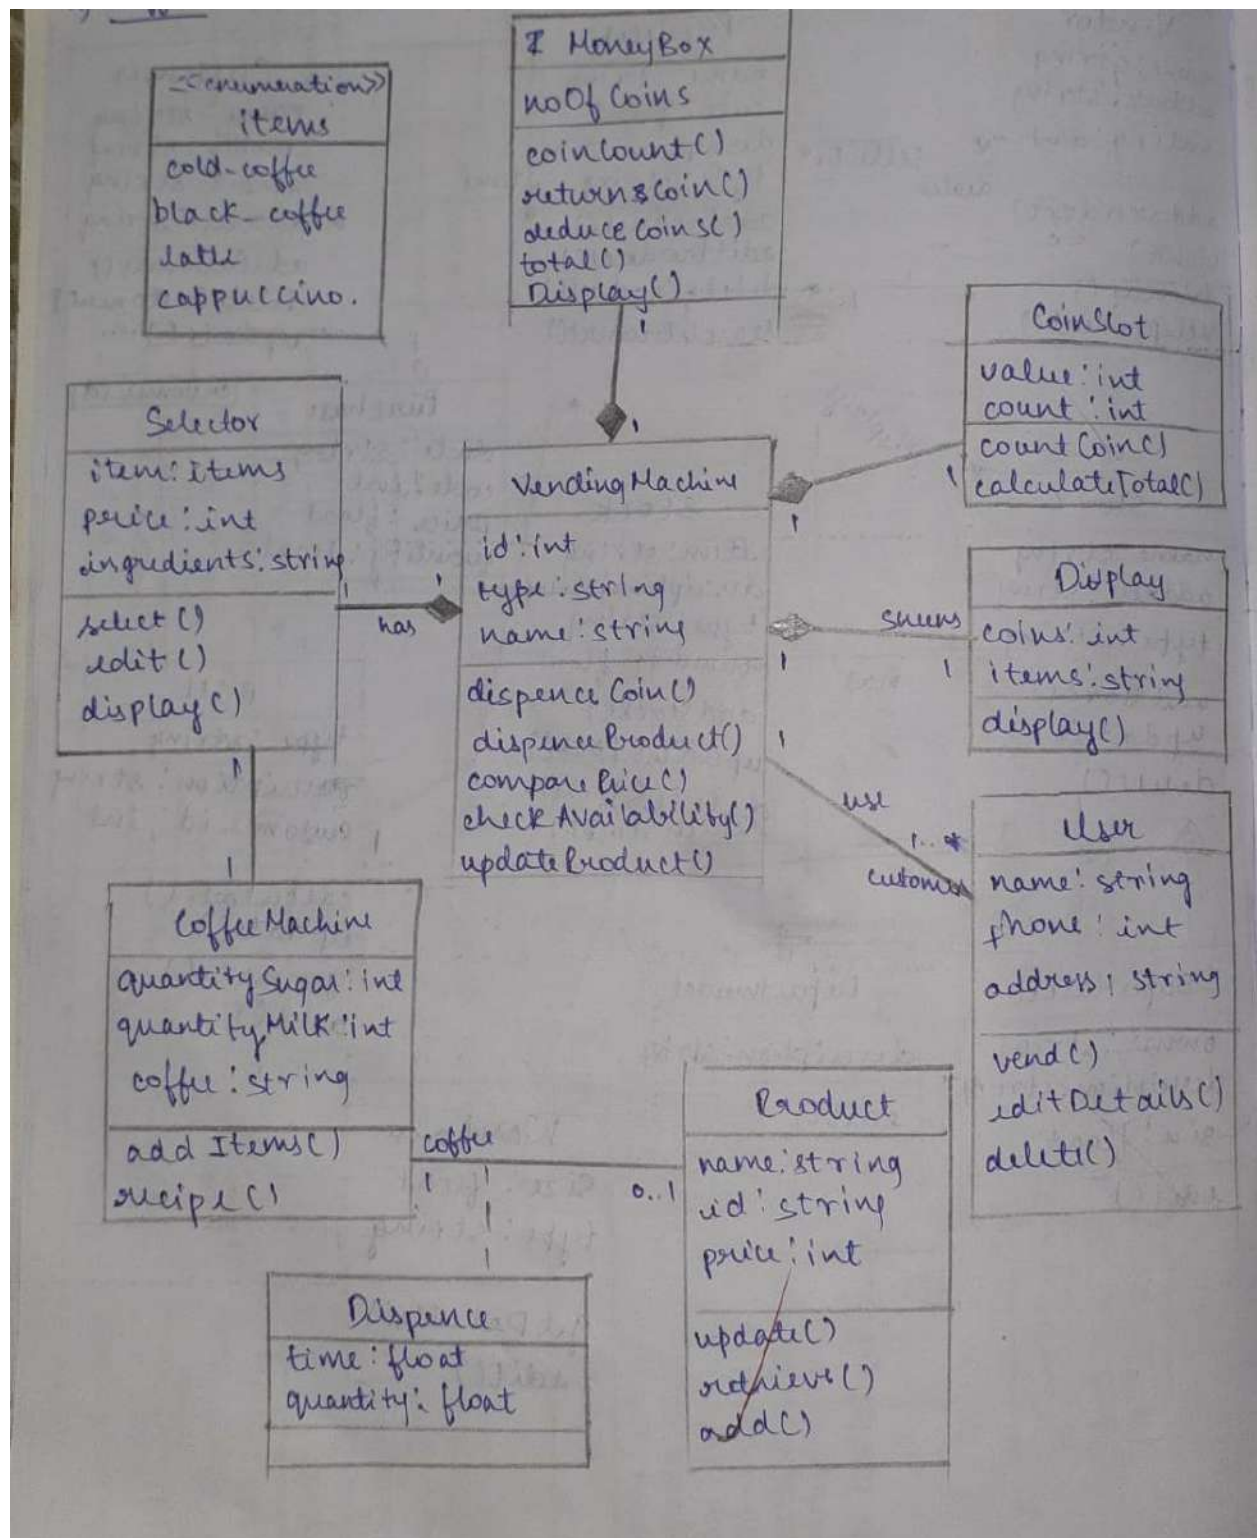 <<enumeration>>
items
cold-coffee
black-coffee
latte
cappuccino.
MoneyBox
noOfCoins
coinCount()
returnsCoin()
deduceCoins()
total()
Display()
1
1
CoinSlot
value:int
count:int
countCoin()
calculateTotal()
1
1
Selector
item:items
price:int
ingredients:string
select()
edit()
display()
1
has
1
VendingMachine
id:int
type:string
name:string
dispenceCoin()
dispenceProduct()
comparePrice()
checkAvailability()
updateProduct()
1
1
Display
coins:int
items:string
display()
1
use
1..*
User
name:string
phone:int
address:string
vend()
editDetails()
delete()
1
1
CoffeeMachine
quantitySugar:int
quantityMilk:int
coffee:string
addItems()
recipe()
coffee
1
0..1
Product
name:string
id:string
price:int
update()
retrieve()
add()
Dispence
time:float
quantity:float